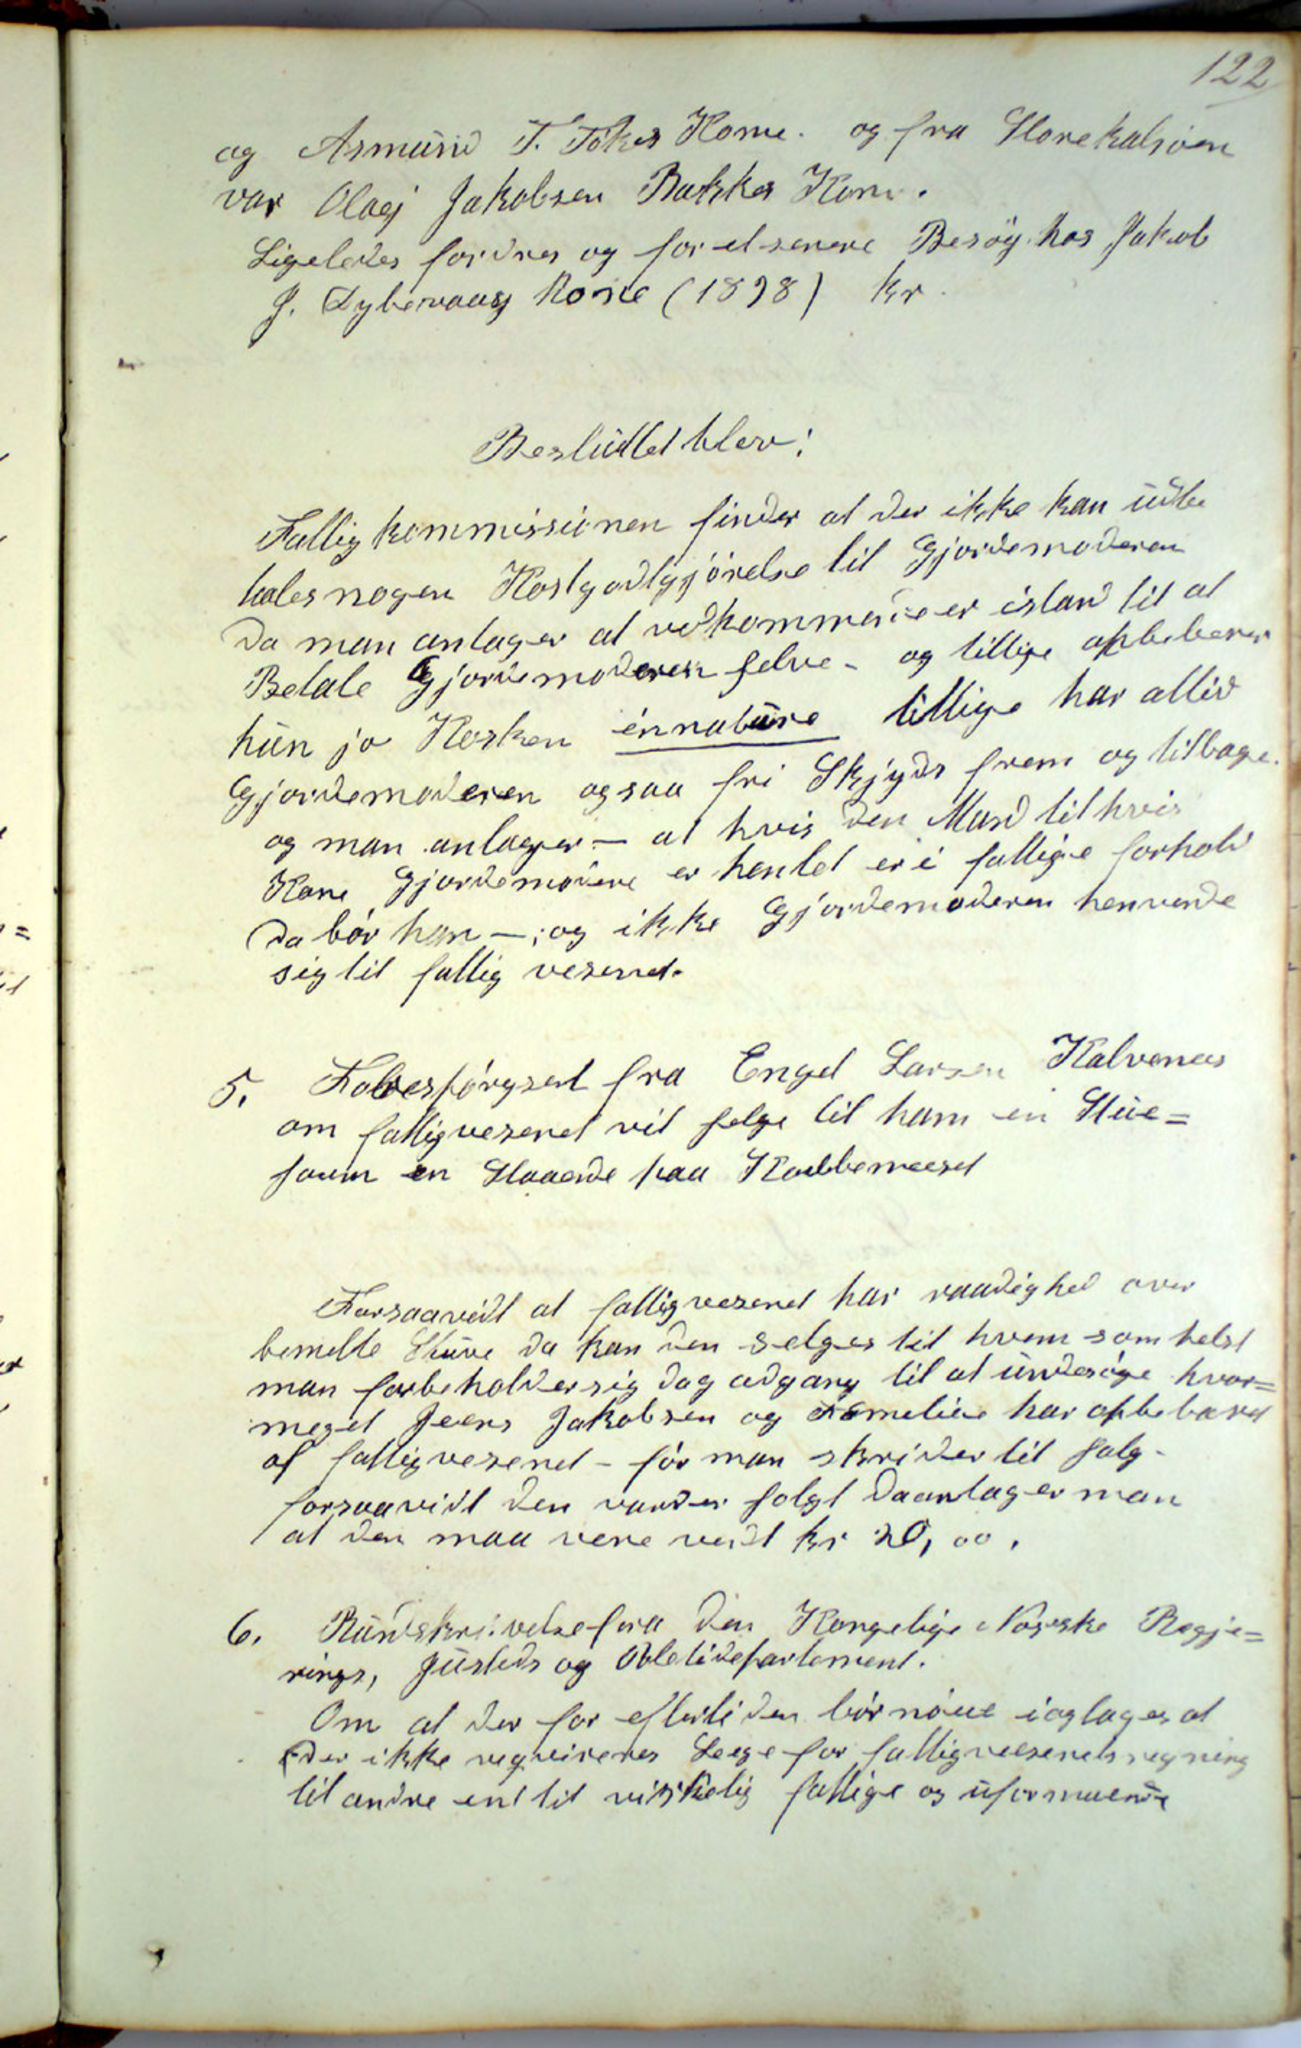 122
og Asmund T. Tókes Kone. og fra Storekalsøen
var Olaej Jakobsen Bakkes Kone.
Ligeledes fordres og for et senere Besög hos Jakob
J. Dybevaag Kone (1898) kr.
Besluttet blev:
Fattigkommissionen finder at der ikke kan udbe
tales nogen Kostgodtgjörelse til Gjordemoderen
da man antager at vedkommende er istand til at
Betale Gjordemoderen selve - og tillige opbeberer
hun jo Kosten énnature tillige har altid
Gjordemoderen ogsaa fri Skjyds frem og tilbage.
og man antager - at hvis den Mand til hvis
Kone Gjordemodere er hentet er i fattige forhold
da bör han -; og ikke Gjordemoderen henvende
sig til fattig vesenet.
5. Forespörgsel fra Engel Larsen Kalvenes
om fattigvesenet vil selge til ham en Stue=
soum en Staaende paa
Forsaavidt at fattigvesenet har raadighed over
bemelte Stuve da kan den selges til hvem som helst
man forbeholder sig dog adgang til at undersöge hvor=
meget Jeens Jakobsen og Familie har opbebaret
af fattigvesenet - för man skrider til salg -
forsaavidt den vurder solgt da antager man
at den maa vere verdt kr 20,00.
6. Rundskrivelse fra den Kongelige Norske Regje=
rings, Justids og Poletidepartement.
Om at der for eftertiden bör nöue iagtages at
der ikke reqvireres Leege for fattigveesenets regning
til andre end til virkelig fattige og uformuende